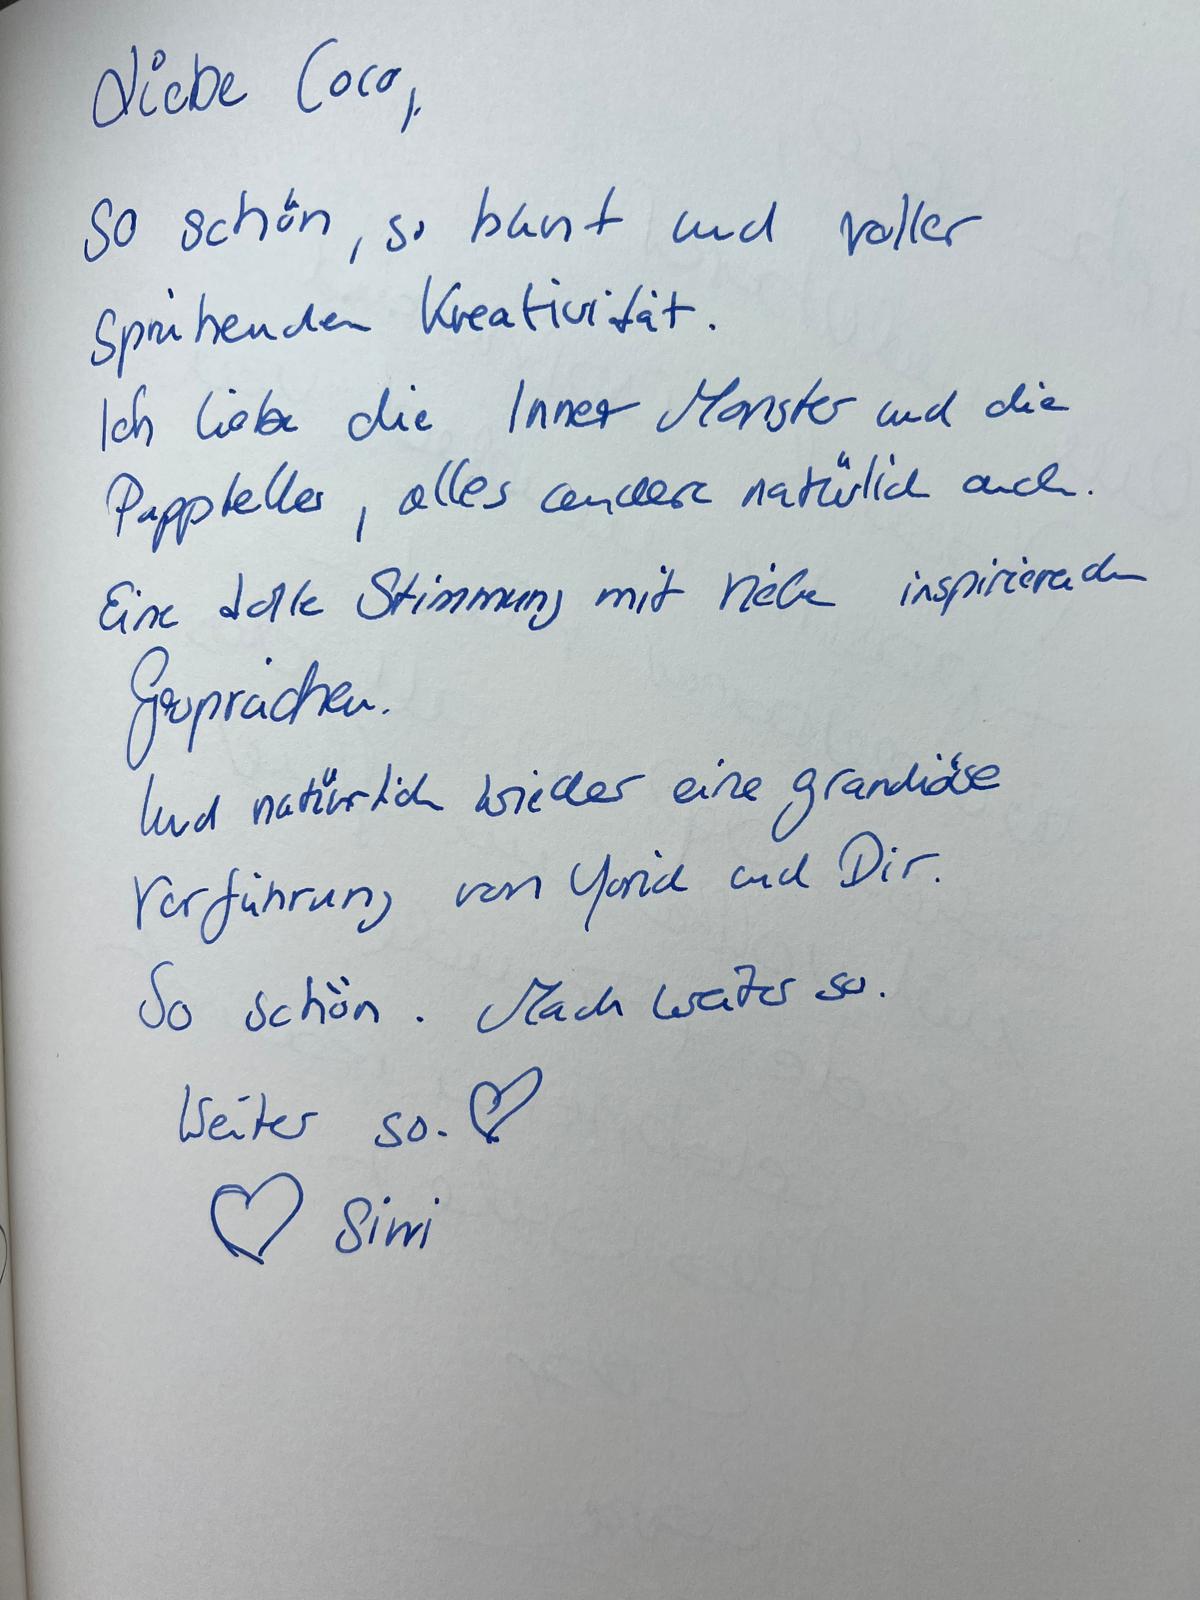 Liebe Coco,
So schön, so bunt und voller
Sprühenden Kreativität.
Ich liebe die Inner Monster und die
Pappteller, alles andere natürlich auch.
Eine tolle Stimmung mit vielen inspirierenden
Gesprächen.
Und natürlich wieder eine grandiose
Vorführung von und Dir.
So schön. Mach weiter so.
Weiter so. ♡
♡